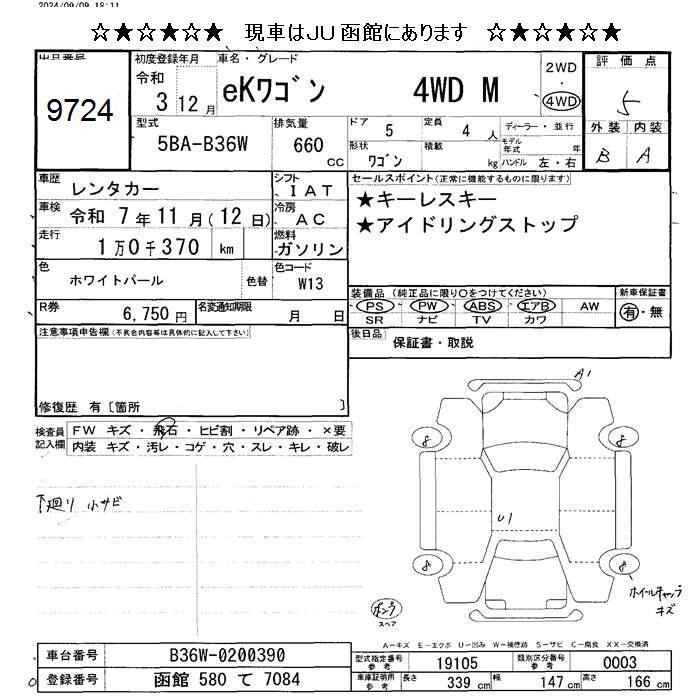 2024/09/09 18:11
☆★☆★☆★☆ 現車はJU函館にあります ☆★☆★☆★☆
出品番号
9724
初度登録年月
令和
3 12月
車名・グレード
eKワゴン 4WD M
2WD
・
4WD
評価点
5
外装 内装
B A
型式
5BA-B36W
排気量
660
cc
ドア
5
定員
4 人
形状
ワゴン
積載
kg
ディーラー・並行
モデル年式 年
ハンドル 左・右
車歴
レンタカー
シフト
IAT
車検
令和 7年11月(12日)
冷房
AC
走行
1万0千370 km
燃料
ガソリン
色
ホワイトパール
色替
色コード
W13
R券
6,750円
名変通知期限
月 日
セールスポイント(正常に機能するものに限ります)
★キーレスキー
★アイドリングストップ
装備品 (純正品に限り○をつけてください)
PS PW ABS エアB AW
SR ナビ TV カワ
新車保証書
有・無
後日品
保証書・取説
注意事項申告欄(不具合内容等は具体的に記入して下さい)
修復歴 有〔箇所 〕
検査員
記入欄
FW キズ・飛石・ヒビ割・リペア跡・×要
内装 キズ・汚レ・コゲ・穴・スレ・キレ・破レ
↑廻り 小サビ
A1
8
8
U1
8
8
ホイールキャップ
キズ
パンク
スペア
A-キズ E-エクボ U-凹み W-補修跡 S-サビ C-腐食 XX-交換済
車台番号
B36W-0200390
登録番号
函館 580 て 7084
型式指定番号
参考
19105
類別区分番号
参考
0003
車庫証明用
参考
長さ
339 cm
幅
147 cm
高さ
166 cm